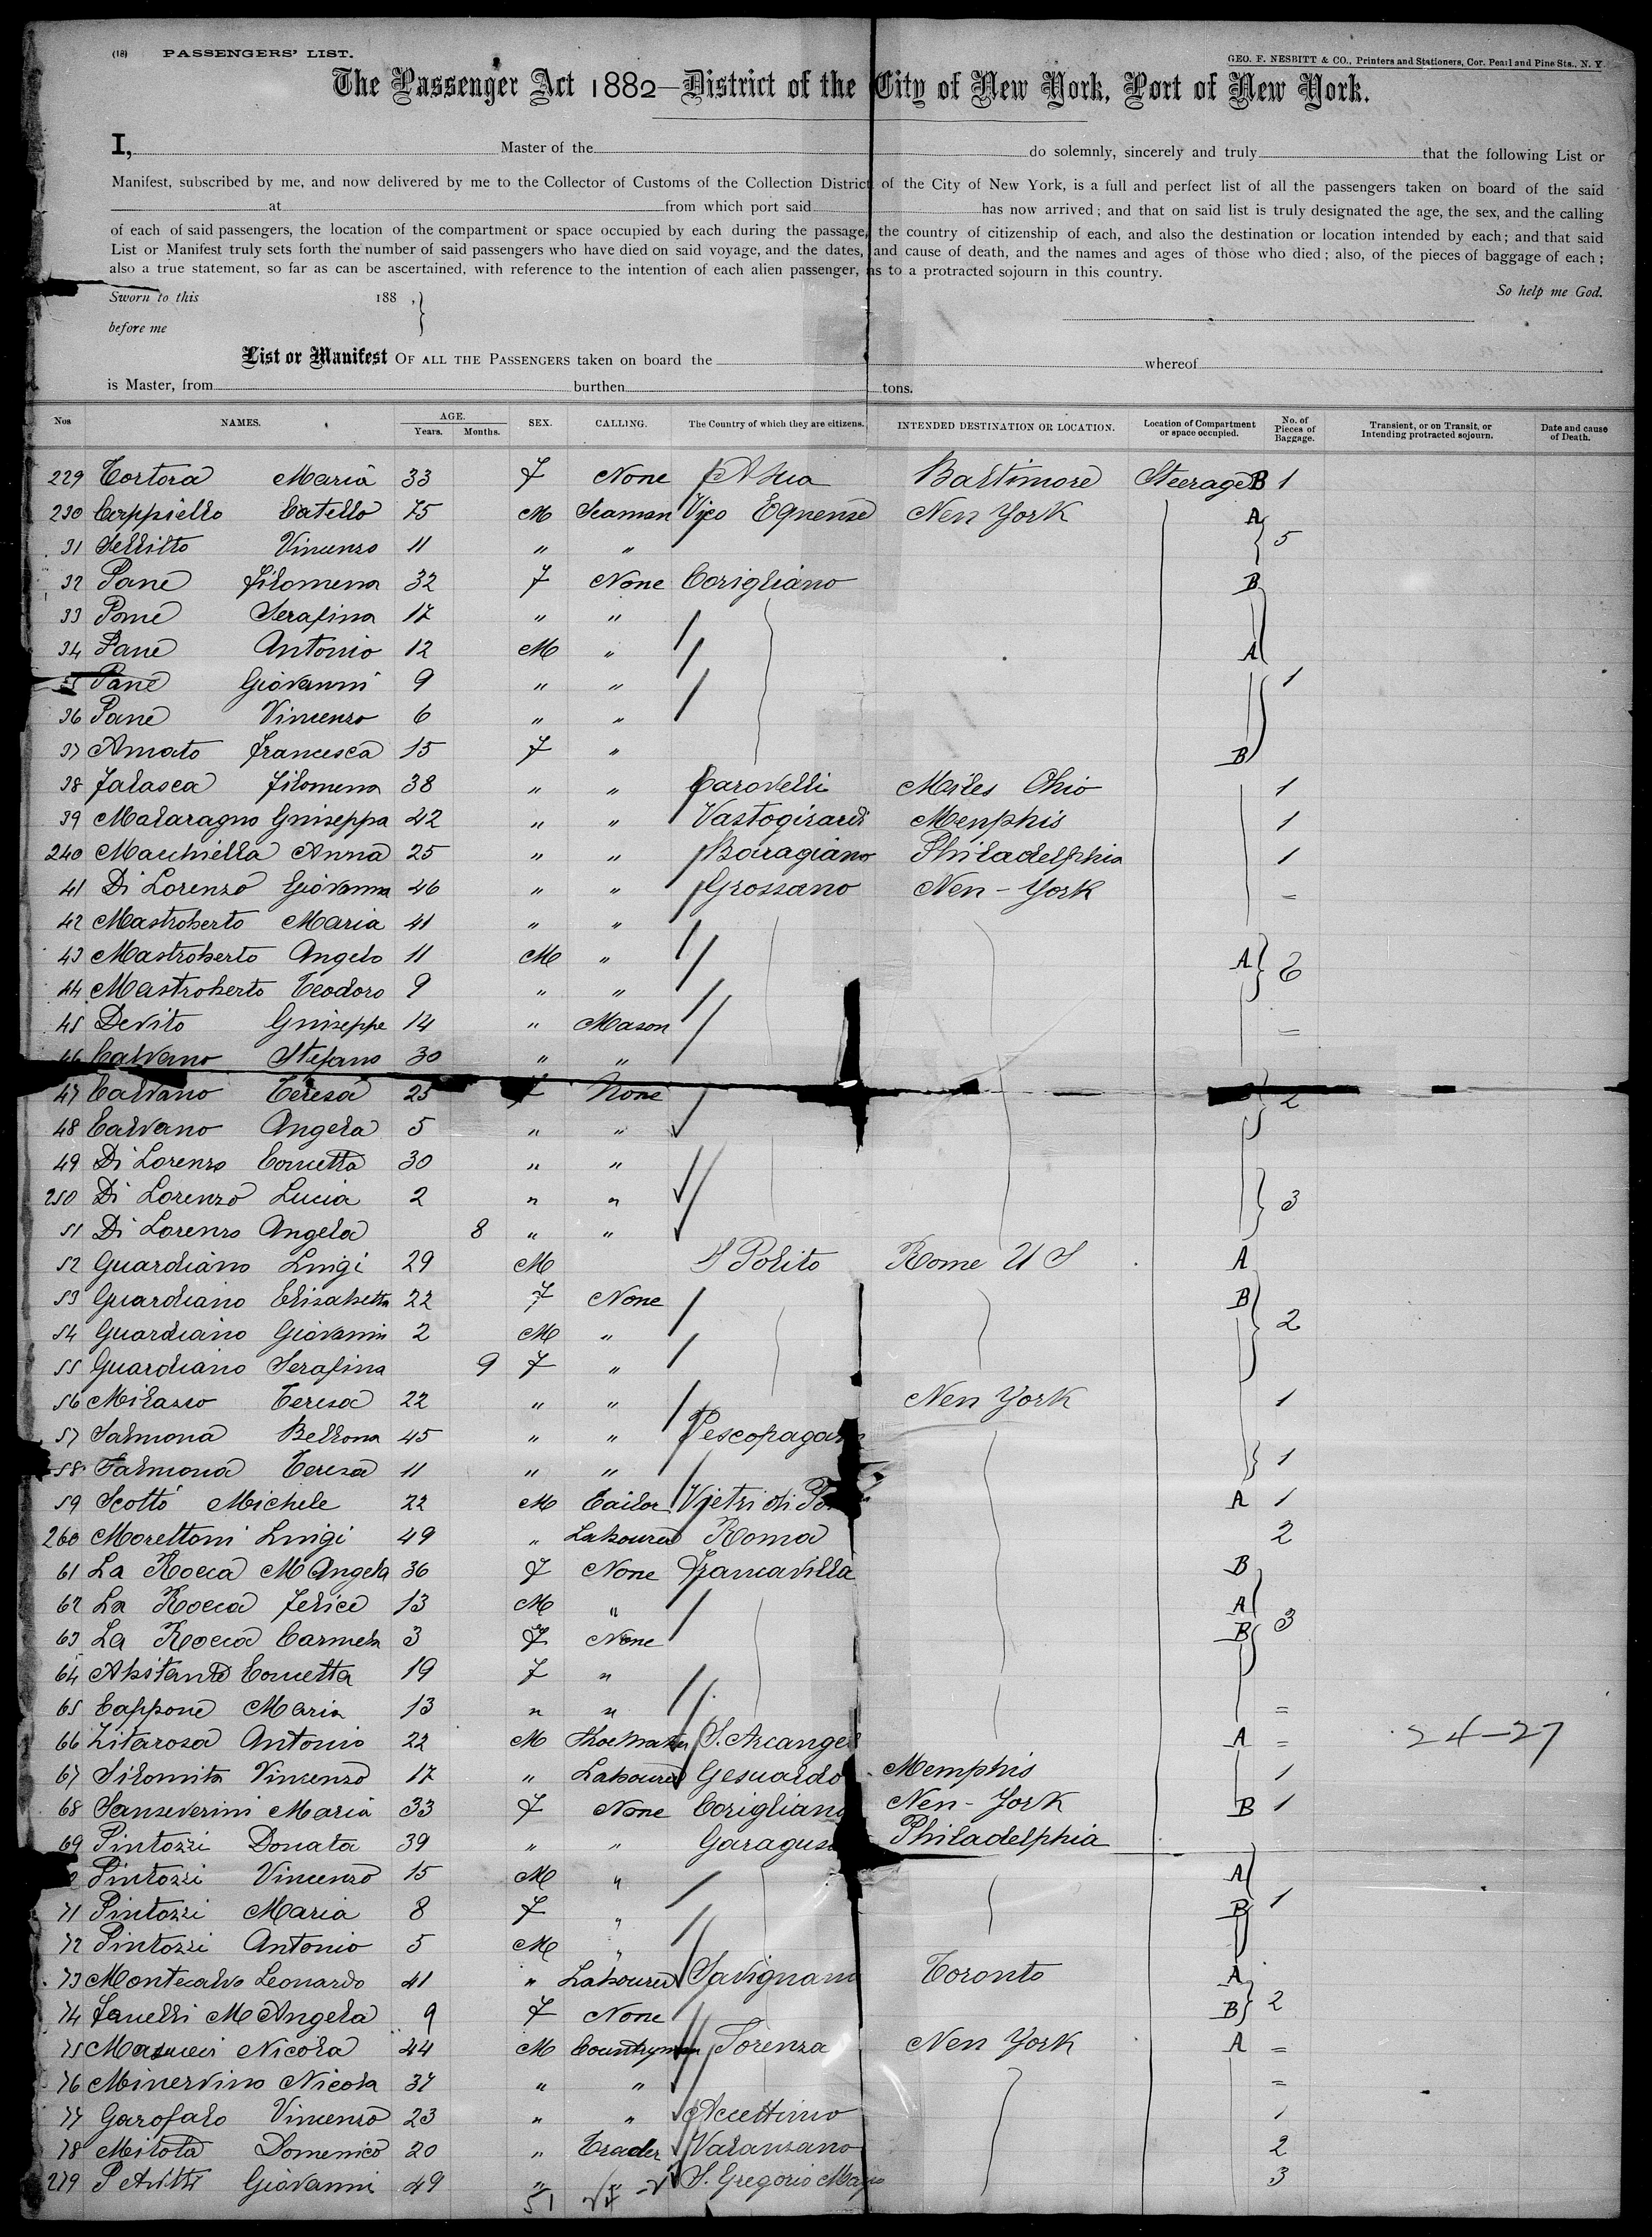 (18) PASSENGERS' LIST.
GEO. F. NESBITT & CO., Printers and Stationers, Cor. Pearl and Pine Sts., N. Y.
The Passenger Act 1882—District of the City of New York, Port of New York.
I, Master of the do solemnly, sincerely and truly that the following List or
Manifest, subscribed by me, and now delivered by me to the Collector of Customs of the Collection District of the City of New York, is a full and perfect list of all the passengers taken on board of the said
at from which port said has now arrived; and that on said list is truly designated the age, the sex, and the calling
of each of said passengers, the location of the compartment or space occupied by each during the passage, the country of citizenship of each, and also the destination or location intended by each; and that said
List or Manifest truly sets forth the number of said passengers who have died on said voyage, and the dates, and cause of death, and the names and ages of those who died; also, of the pieces of baggage of each;
also a true statement, so far as can be ascertained, with reference to the intention of each alien passenger, as to a protracted sojourn in this country.
Sworn to this 188 , So help me God.
before me
List or Manifest OF ALL THE PASSENGERS taken on board the whereof
is Master, from burthen tons.
Nos NAMES. AGE. Years. Months. SEX. CALLING. The Country of which they are citizens. INTENDED DESTINATION OR LOCATION. Location of Compartment or space occupied. No. of Pieces of Baggage. Transient, or on Transit, or Intending protracted sojourn. Date and cause of Death.
229 Tortora Maria 33 F None Baltimore Steerage B 1
230 Catello 75 M Seaman Vico Equense New York A
31 Vincenzo 11 " " 5
32 Pane Filomena 32 F None Corigliano B
33 Pane Serafina 17 " "
34 Pane Antonio 12 M " A
35 Pane Giovanni 9 " " 1
36 Pane Vincenzo 6 " "
37 Amato Francesca 15 F " B
38 Falasca Filomena 38 " " Carovelli Miles Ohio 1
39 Malaragno Giuseppa 42 " " Vastogirardi Menphis 1
240 Macchiella Anna 25 " " Philadelphia 1
41 Di Lorenzo Giovanna 46 " " Grossano New-York =
42 Mastroberto Maria 41 " "
43 Mastroberto Angelo 11 M " A 6
44 Mastroberto Teodoro 9 " "
45 Devito Giuseppe 14 " Mason =
46 Calvano Stefano 30 " "
47 Calvano Teresa 25 F None 2
48 Calvano Angela 5 " "
49 Di Lorenzo Concetta 30 " "
250 Di Lorenzo Lucia 2 " " 3
51 Di Lorenzo Angela 8 " "
52 Guardiano Luigi 29 M Polito Rome U S A
53 Guardiano Elisabetta 22 F None B
54 Guardiano Giovanni 2 M " 2
55 Guardiano Serafina 9 F "
56 Teresa 22 " " New York 1
57 Salmona Bellona 45 " " Pescopagano
58 Salmona Teresa 11 " " 1
59 Scotto Michele 22 M Tailor Vietri di A 1
260 Morettoni Luigi 49 " Labourer Roma 2
61 La Rocca M Angela 36 F None Francavilla B
62 La Rocca Felice 13 M " A
63 La Rocca Carmela 3 F None B 3
64 Concetta 19 F "
65 Cappone Maria 13 " " =
66 Zitarosa Antonio 22 M Shoemaker S. Arcangel A = 24-27
67 Silomita Vincenzo 17 " Labourer Gesualdo Memphis 1
68 Sanseverini Maria 33 F None Corigliano New-York B 1
69 Pintozzi Donata 39 " " Garaguso Philadelphia
Pintozzi Vincenzo 15 M " A
71 Pintozzi Maria 8 F " B 1
72 Pintozzi Antonio 5 M "
73 Montecalvo Leonardo 41 " Labourer Savignano Toronto A
74 Fanelli M Angela 9 F None B 2
75 Nicola 44 M Countryman Forenza New York A =
76 Minervino Nicola 37 " " =
77 Garofalo Vincenzo 23 " " Accettino 1
78 Milota Domenico 20 " Trader Valanzano 2
279 Giovanni 49 " " S. Gregorio Magno 3
51